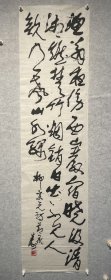 漁翁夜傍西巖宿曉汲清
湘燃楚竹烟銷日出不見人
欸乃一聲山水綠
柳宗元詩